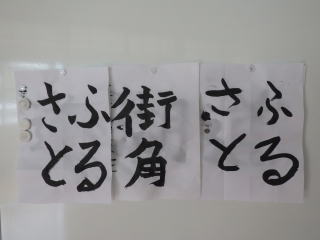 ふる
さと
街角
ふる
さと